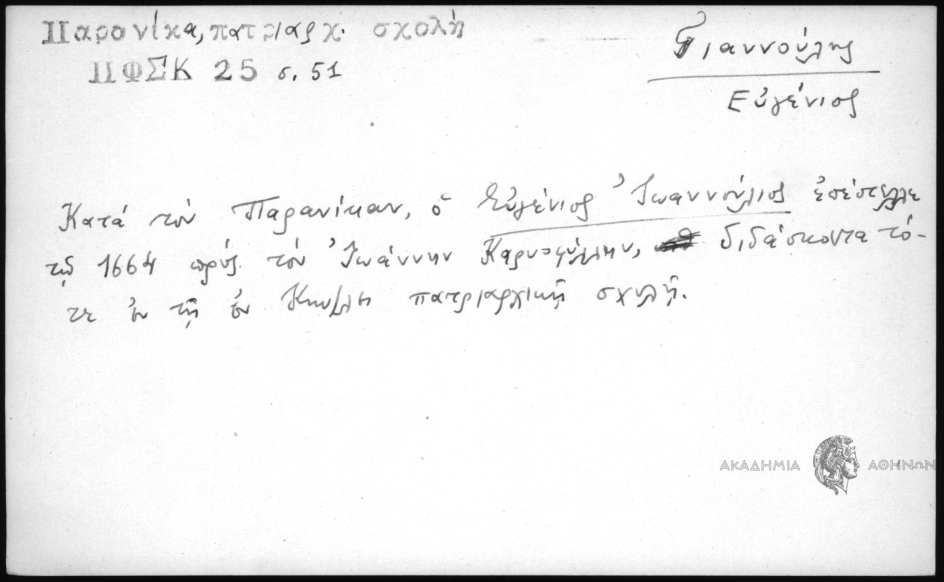 Παρονίκα, πατριαρχ. σχολή
ΠΦΣΚ 25 σ. 51
Γιαννούλης
Εὐγένιος
Κατά τον Παρανίκαν, ὁ Εὐγένιος Ἰωαννούλιος ἐπέστελλε
τῷ 1664 πρός τον Ἰωάννην Καρυοφύλλην, διδάσκοντα τό-
τε ἐν τῇ ἐν Κπόλει πατριαρχικῇ σχολῇ.
ΑΚΑΔΗΜΙΑ ΑΘΗΝΩΝ